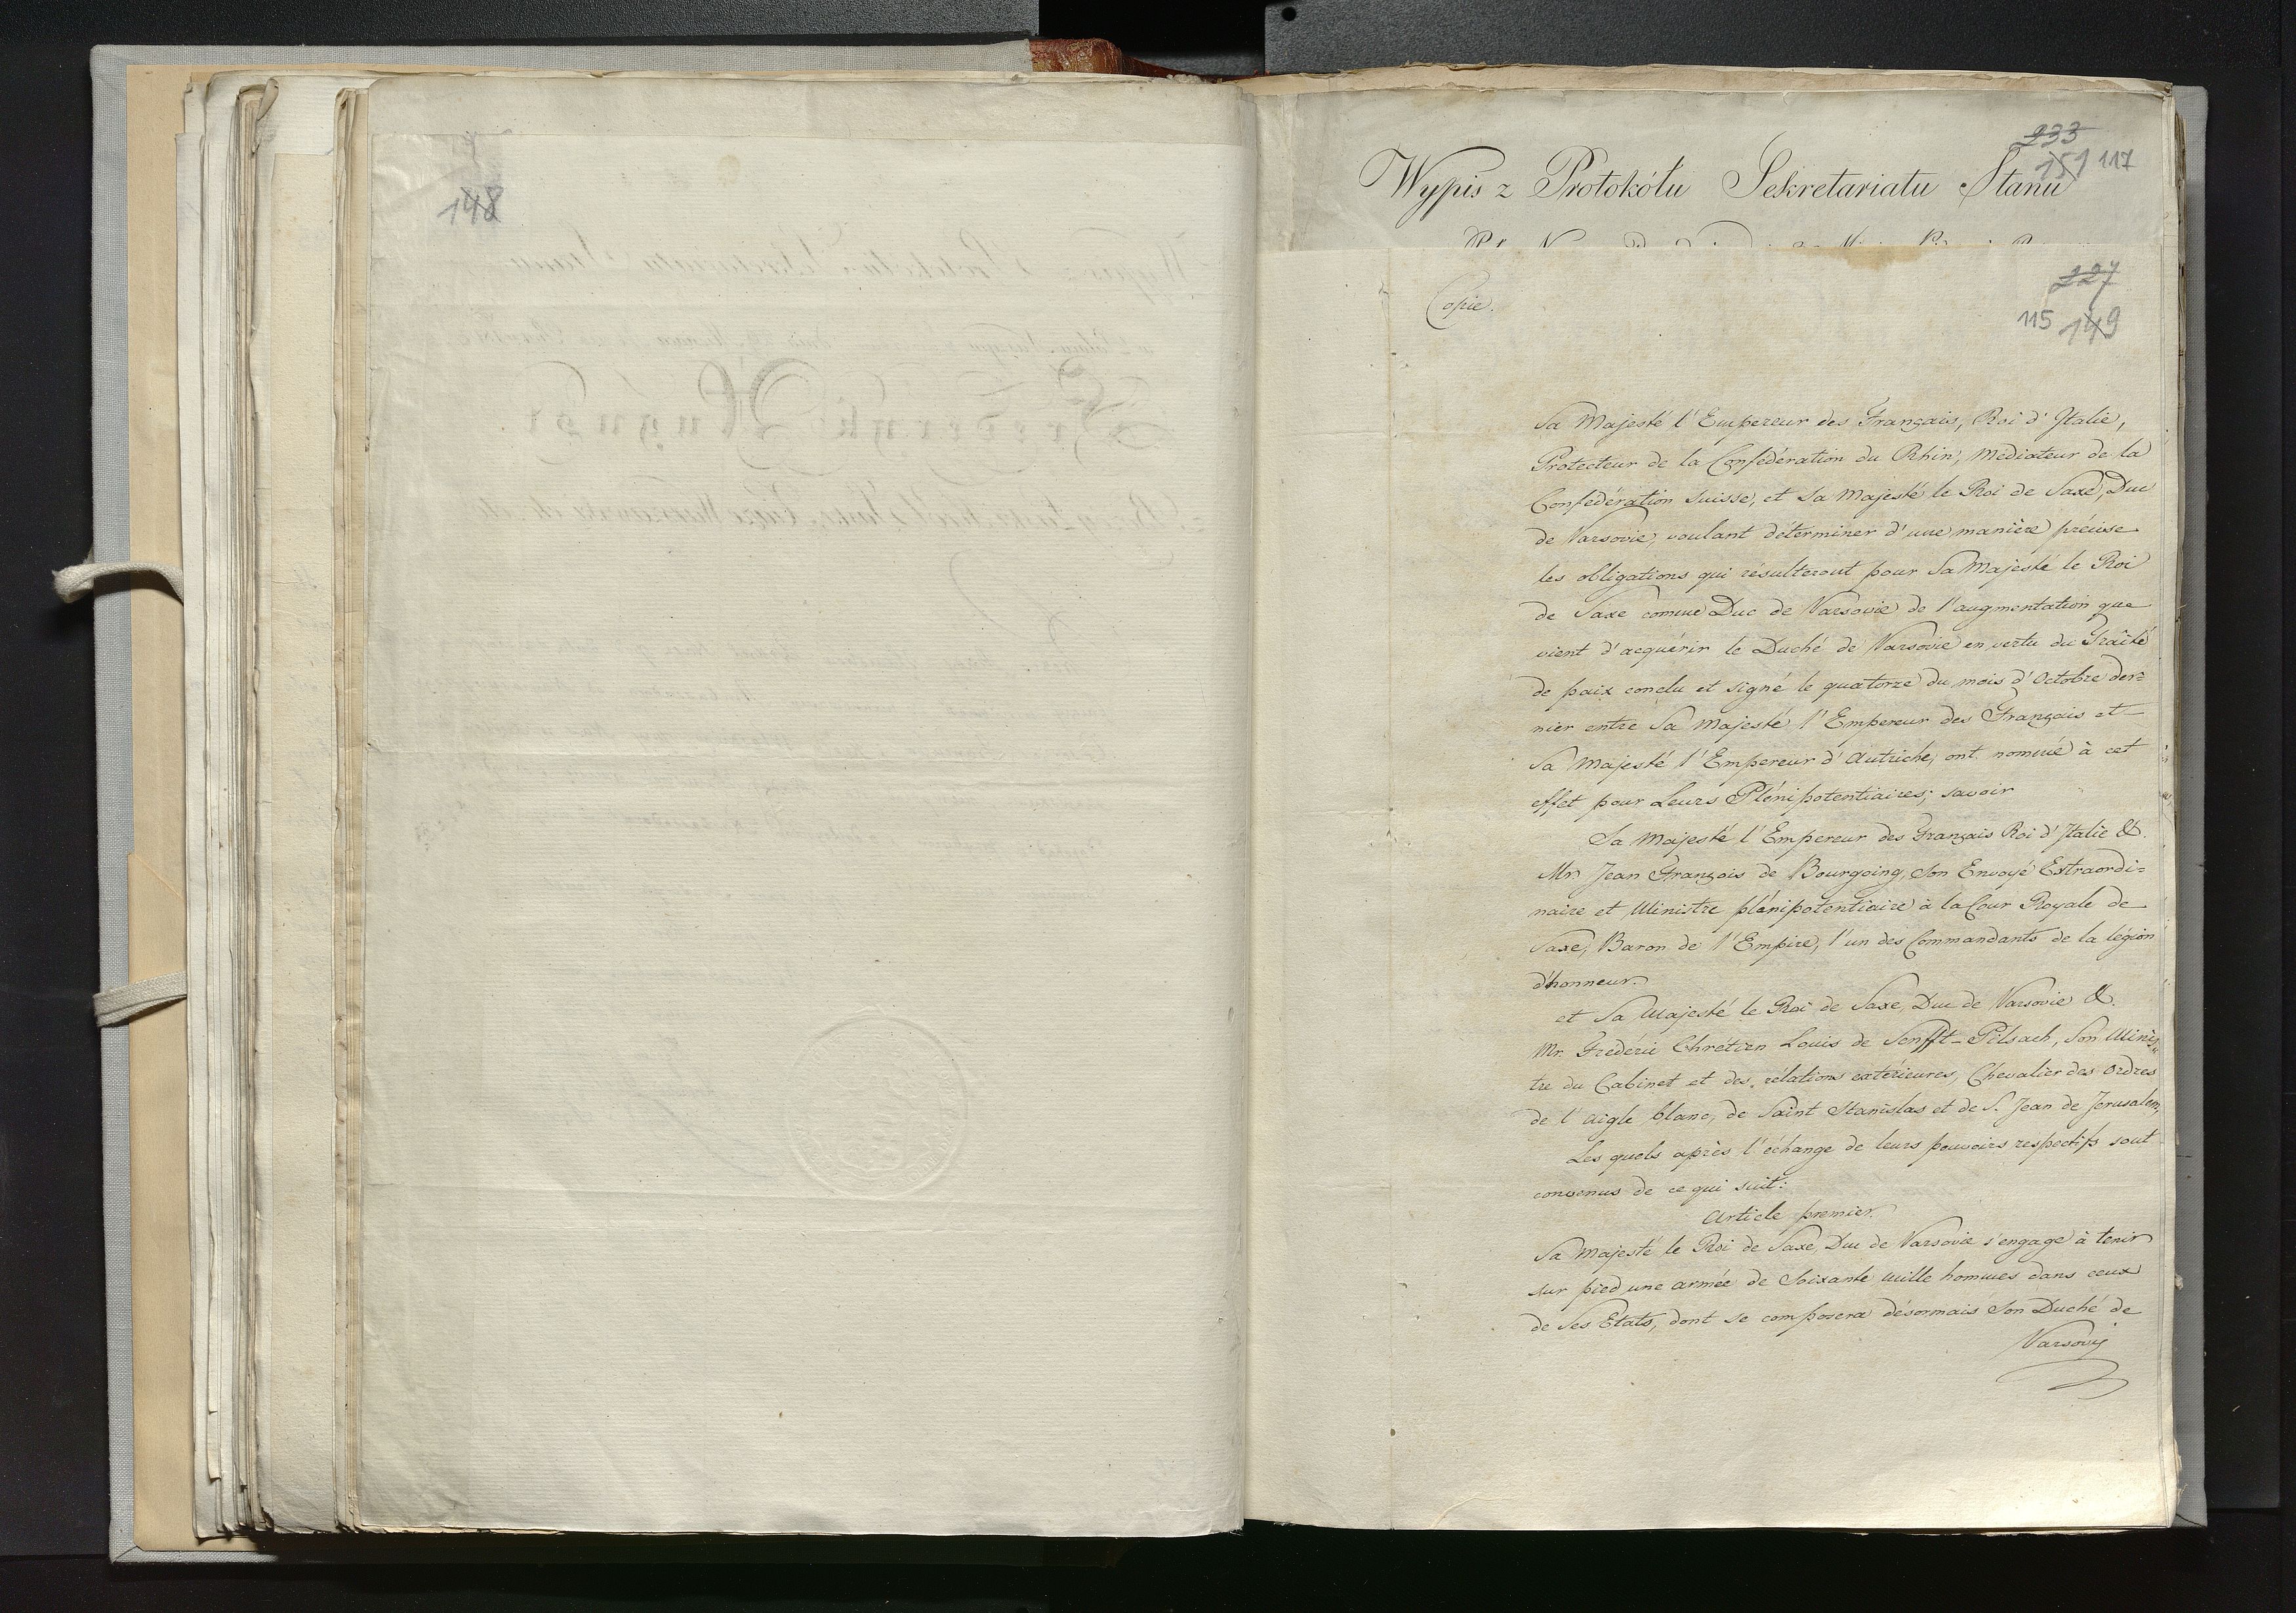 148
233
151 117
Wypis z Protokółu Sekretariatu Stanu
227
115 149
Copie.
Sa Majesté l'Empereur des Français, Roi d'Italie,
Protecteur de la Confédération du Rhin, Médiateur de la
Confédération Suisse, et Sa Majesté le Roi de Saxe, Duc
de Varsovie, voulant déterminer d'une manière précise
les obligations qui résulteront pour Sa Majesté le Roi
de Saxe comme Duc de Varsovie de l'augmentation que
vient d'acquérir le Duché de Varsovie en vertu du Traité
de paix conclu et signé le quatorze du mois d'Octobre der=
nier entre Sa Majesté l'Empereur des Français et
Sa Majesté l'Empereur d'Autriche, ont nommé à cet
effet pour Leurs Plénipotentiaires; savoir
Sa Majesté l'Empereur des Français Roi d'Italie &.
Mr. Jean François de Bourgoing, Son Envoyé Extraordi=
naire et Ministre plénipotentiaire à la Cour Royale de
Saxe, Baron de l'Empire, l'un des Commandants de la légion
d'honneur.
et Sa Majesté le Roi de Saxe, Duc de Varsovie &.
Mr. Frederic Chrétien Louis de Senfft-Pilsach, Son Minis„
tre du Cabinet et des rélations extérieures, Chevalier des Ordres
de l'Aigle blanc, de Saint Stanislas et de S. Jean de Jerusalem,
Les quels après l'échange de leurs pouvoirs respectifs sont
convenus de ce qui suit:
Article premier.
Sa Majesté le Roi de Saxe, Duc de Varsovie s'engage à tenir
sur pied une armée de Soixante mille hommes dans ceux
de Ses Etats, dont se composera désormais Son Duché de
Varsovi